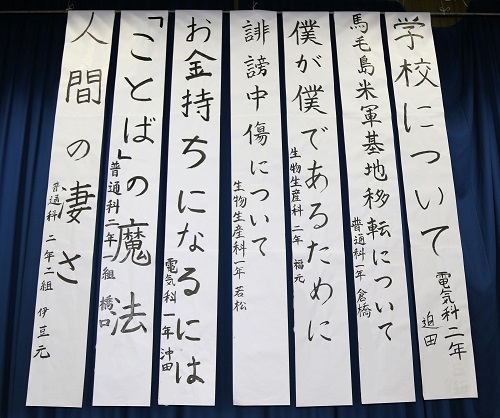 学校について
電気科二年 迫田
馬毛島米軍基地移転について
普通科一年 倉橋
僕が僕であるために
生物生産科 二年 福元
誹謗中傷について
生物生産科一年 若松
お金持ちになるには
電気科 一年 沖田
「ことば」の魔法
普通科二年一組 橋口
人間の凄さ
普通科 二年二組 伊豆元